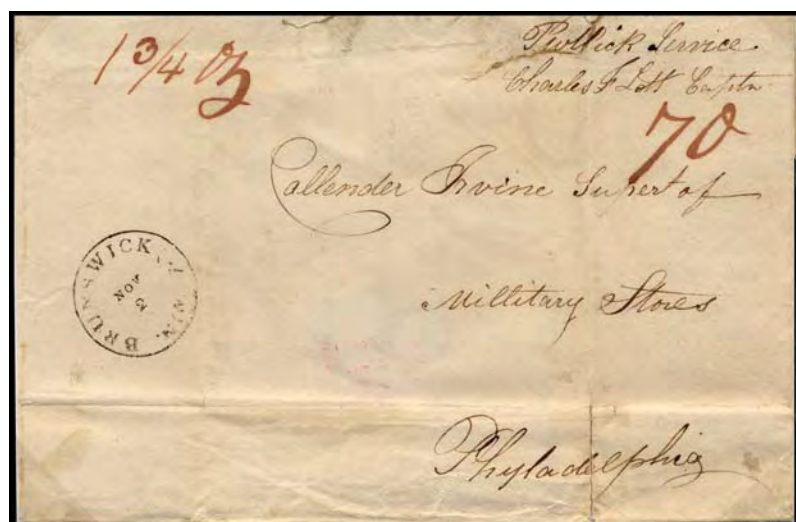 Publick Service
Charles F Lott Captn
1 3/4 oz
70
Callender Irvine Supert of
Millitary Stores
Phyladelphia
BRUNSWICK
NOV
2